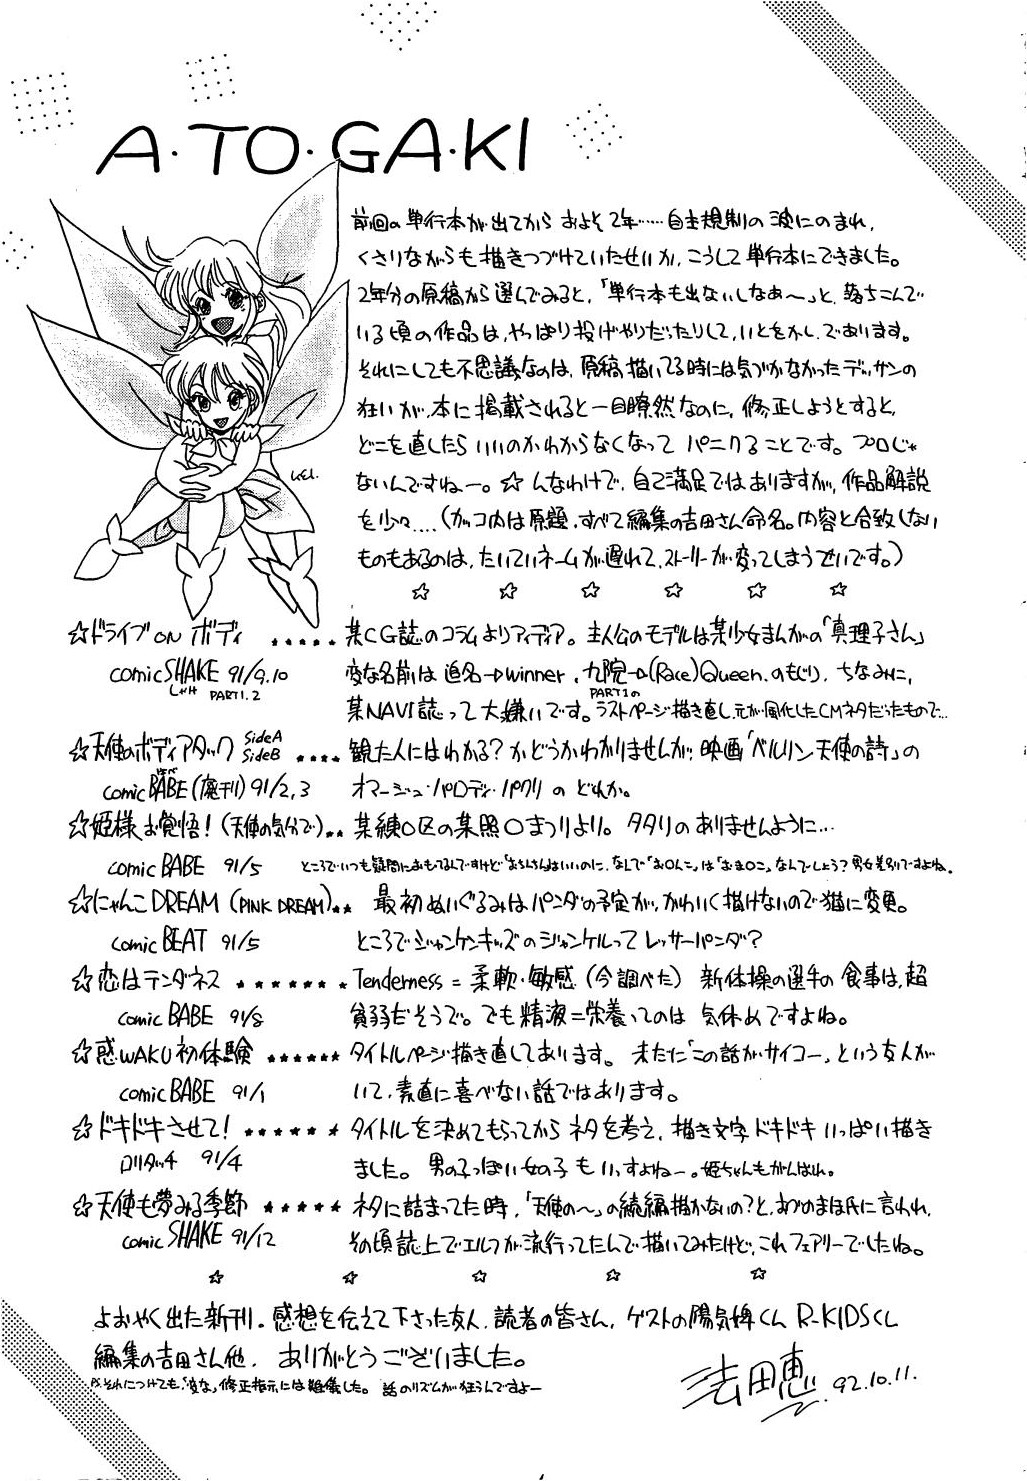 A・TO・GA・KI
前回の単行本が出てから およそ2年……自主規制の波にのまれ、
くさりながらも描きつづけていたせいか、こうして単行本にできました。
2年分の原稿から選んでみると、「単行本も出ないしなあ〜」と、落ちこんで
いる頃の作品は、やっぱり投げやりだったりして、いとをかし、であります。
それにしても不思議なのは、原稿描いてる時には気づかなかったデッサンの
狂いが、本に掲載されると一目瞭然なのに、修正しようとすると、
どこを直したらいいのかわからなくなって パニクることです。プロじゃ
ないんですねー。☆んなわけで、自己満足ではありますが、作品解説
を少々…(カッコ内は原題、すべて編集の吉田さん命名。内容と合致しない
ものもあるのは、たいていネームが遅れて、ストーリーが変ってしまうせいです。)
lei.
☆ ☆ ☆ ☆ ☆ ☆
☆ドライブON ボディ ★★★★★ 某CG誌のコラムよりアイディア。主人公のモデルは某少女まんがの「真理子さん」
comic SHAKE 91/9.10 変な名前は 追名→winner、九院→(Race)Queen、のもじり、ちなみに、
シェイク PART1.2 某NAVI誌って大嫌いです。PART1のラストページ描き直し、元が風化したCMネタだったもので…
☆天使のボディアタック SideA SideB ★★★★ 観た人にはわかる?かどうかわかりませんが、映画「ベルリン天使の詩」の
comic BABE(廃刊) 91/2,3 オマージュ・パロディ・パクリ の どれか。
☆姫様お覚悟!(天使の気分で)★★ 某練○区の某照○まつりより。タタリのありませんように…
comic BABE 91/5 ところでいつも疑問におもてるんですけど「おちんちんはいいのに、なんで「お○んこ」は「おま○こ」なんでしょう?男女差別ですよね。
☆にゃんこDREAM(PINK DREAM)★★ 最初ぬいぐるみはパンダの予定が、かわいく描けないので猫に変更。
comic BEAT 91/5 ところでジャンケンキッズのジャンケルってレッサーパンダ?
☆恋はテンダネス ★★★★★★★ Tenderness = 柔軟・敏感(今調べた) 新体操の選手の食事は、超
comic BABE 91/8 貧弱だそうで。でも精液=栄養ってのは 気休めですよね。
☆惑WAKU初体験 ★★★★★★ タイトルページ描き直してあります。未だに「この話がサイコー」という友人が
comic BABE 91/1 いて、素直に喜べない話ではあります。
☆ドキドキさせて! ★★★★★★ タイトルを決めてもらってからネタを考え、描き文字ドキドキいっぱい描き
ロリタッチ 91/4 ました。男の子っぽい女の子もいっすよねー。姫ちゃんもがんばれ。
☆天使も夢みる季節 ★★★★★ ネタに詰まってた時、「天使の〜」の続編描かないの?と、あづまゆまほ氏に言われ、
comic SHAKE 91/12 その頃誌上でエルフが流行ってたんで描いてみたけど、これフェアリーでしたね。
☆ ☆ ☆ ☆ ☆
よおやく出た新刊。感想を伝えて下さった友人、読者の皆さん、ゲストの陽気婢くん R-KIDSくん
編集の吉田さん他、ありがとうございました。
それにつけても、「変な」修正指示には難儀した。話のリズムが狂うんですよー
法田恵 92.10.11.